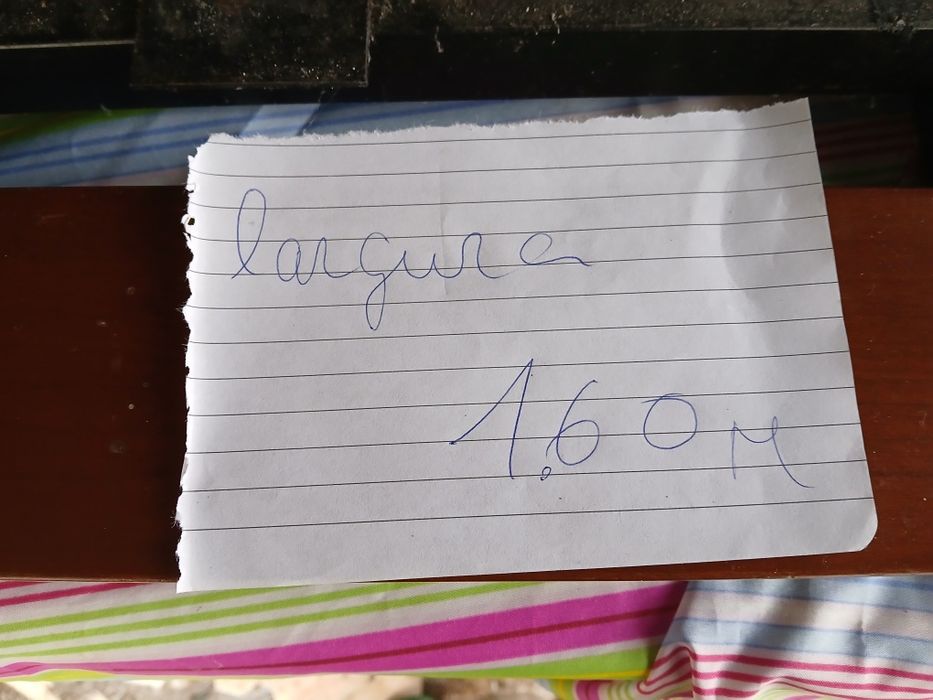 largura
1.60 M